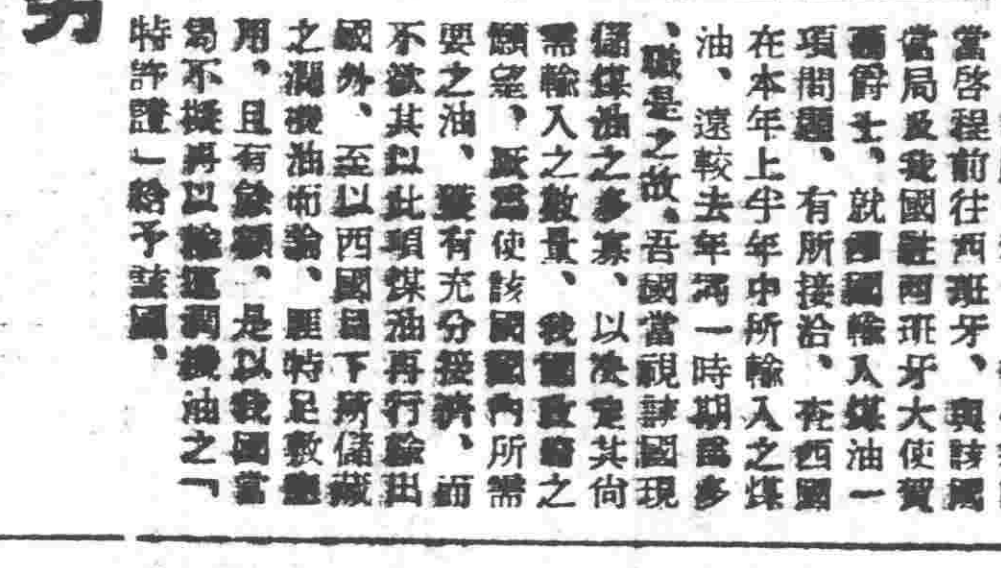 當啓程前往西班牙、與該國
當局及我國駐西班牙大使賀
爾爵士、就西國輸入煤油一
項問題、有所接洽、在西國
在本年上半年中所輸入之煤
油、遠較去年同一時期爲多
、職是之故、吾國當視該國現
儲煤油之多寡、以決定其尙
需輸入之數量、我國政府之
願望、厥爲使該國國內所需
要之油、獲有充分接濟、而
不欲其以此項煤油再行輸出
國外、至以西國目下所儲藏
之潤機油而論、匪特足敷應
用、且有餘額、是以我國當
局不擬再以輸運潤機油之「
特許證」給予該國、